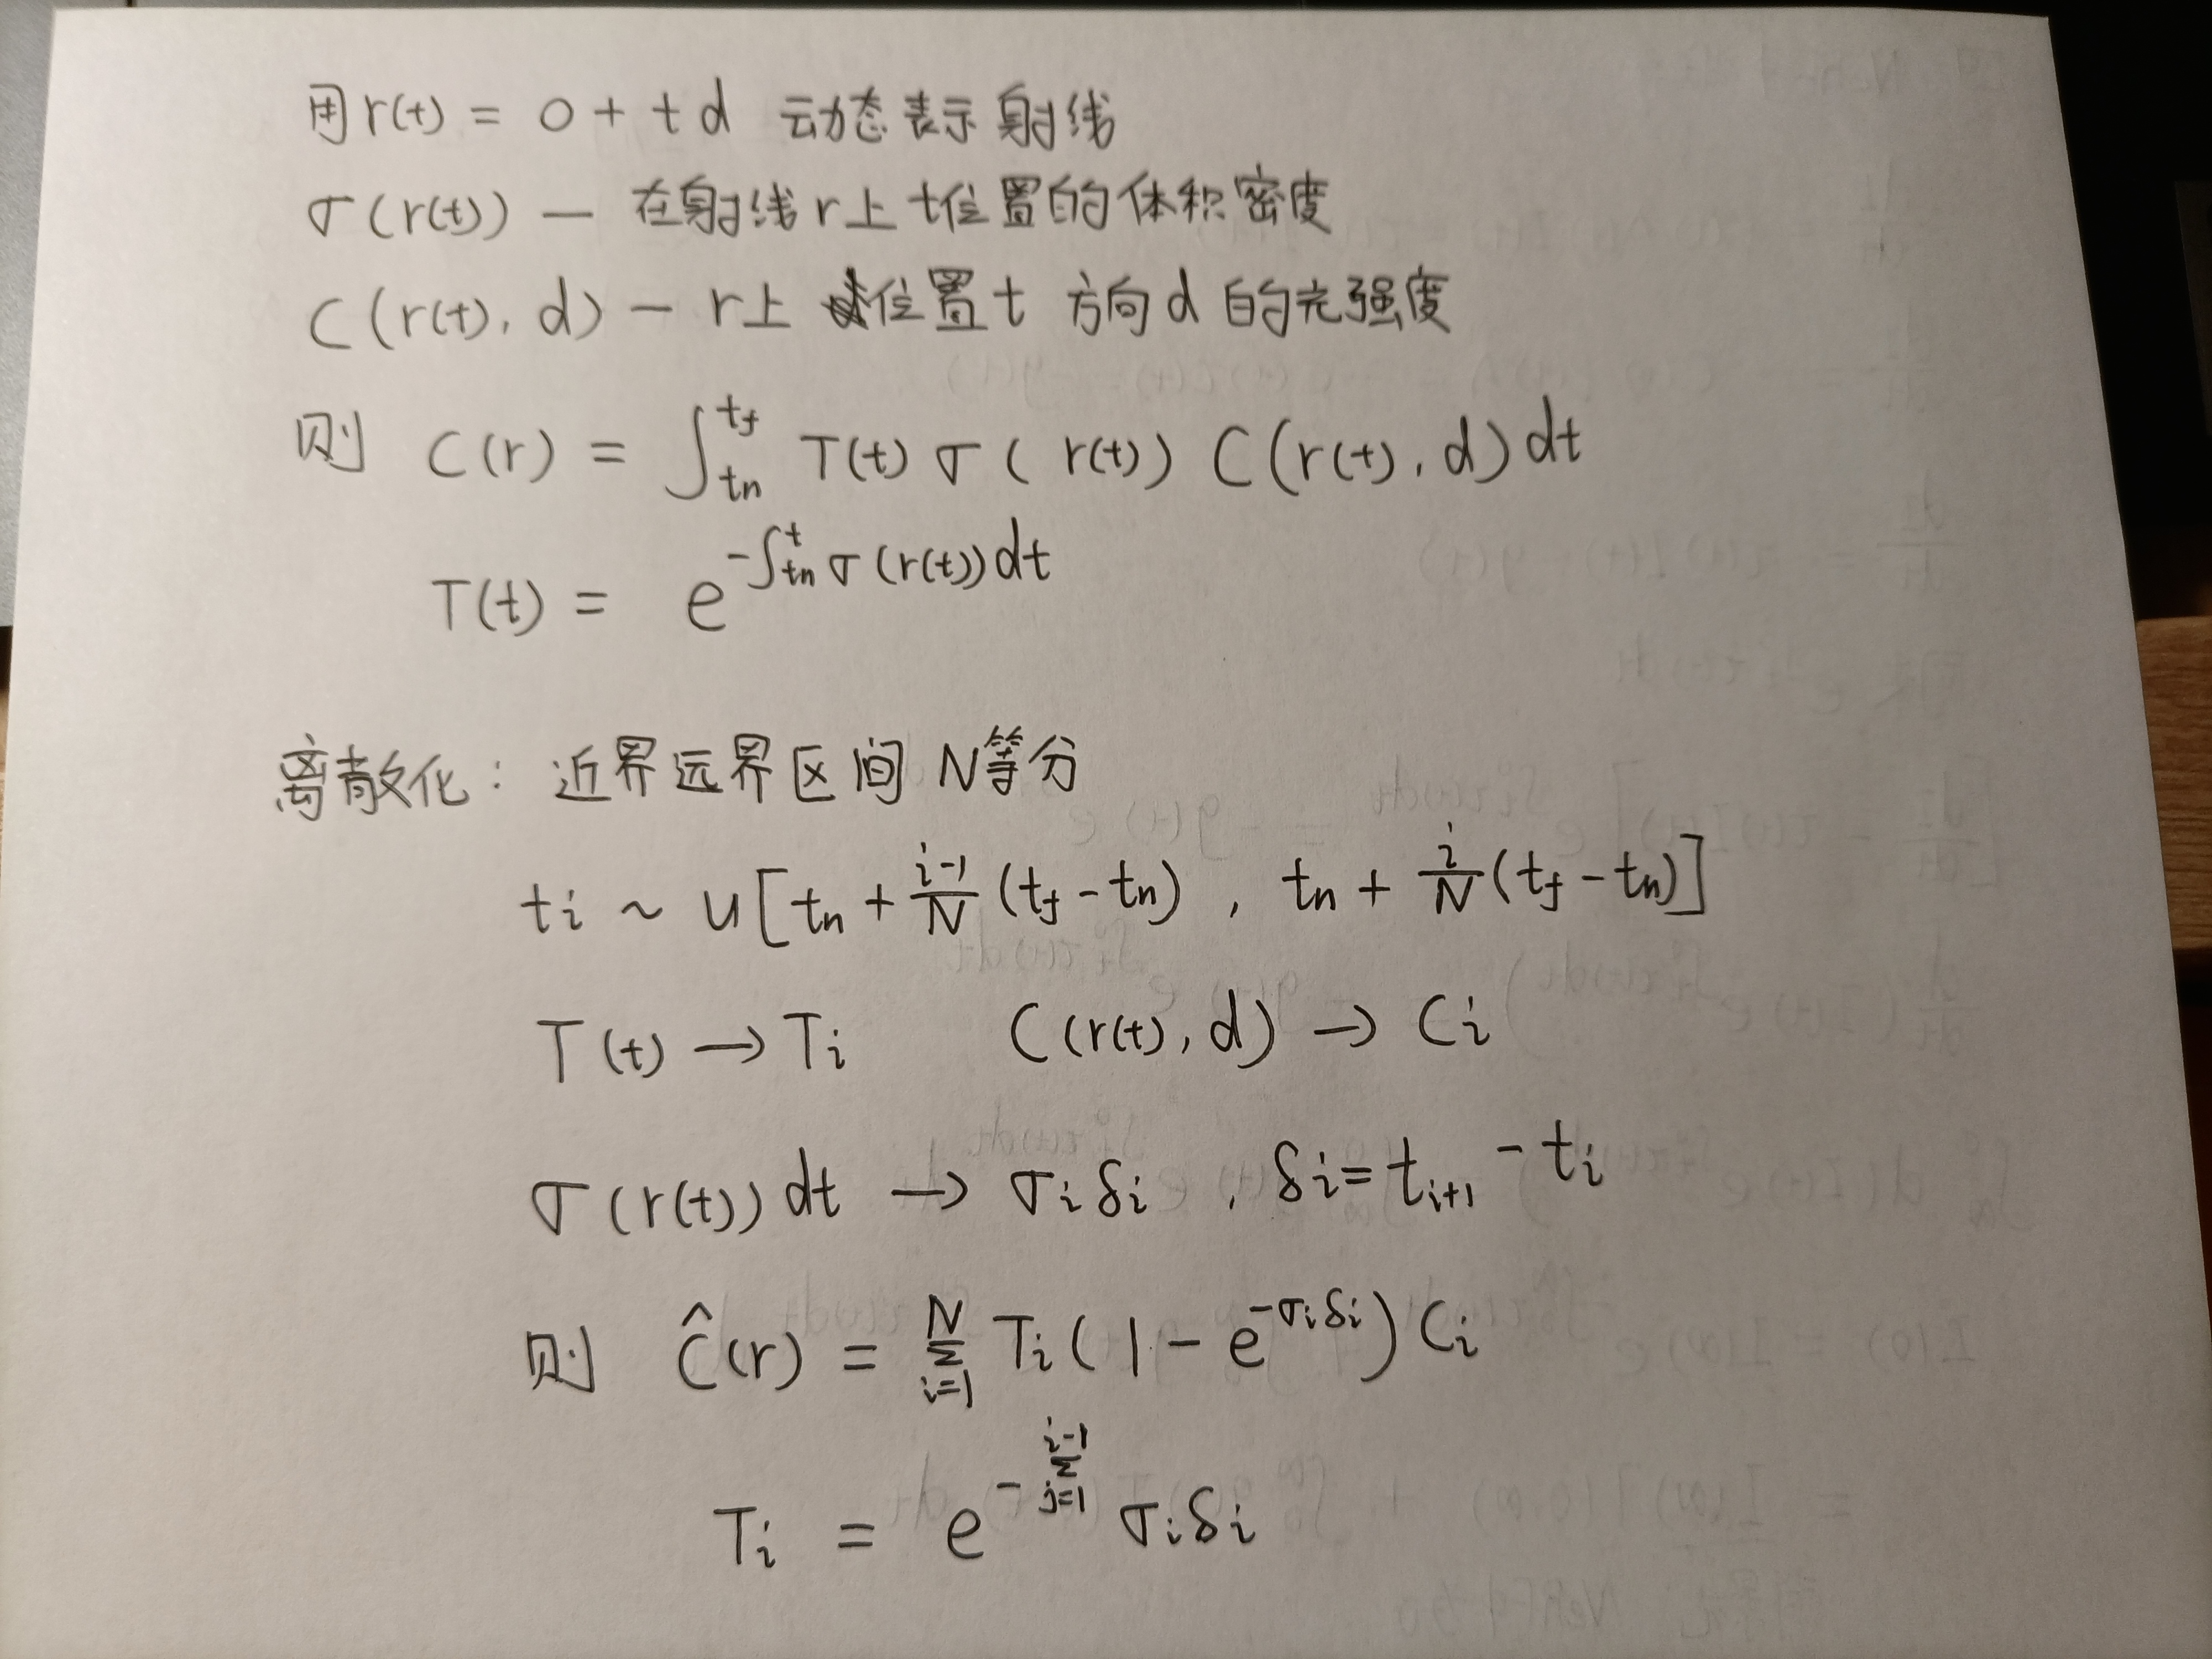 用r(t) = o + td 动态表示射线
σ(r(t)) — 在射线r上t位置的体积密度
C(r(t), d) — r上位置t 方向d的光强度
则 C(r) = ∫_{tn}^{tf} T(t) σ(r(t)) C(r(t), d) dt
T(t) = e^{-∫_{tn}^{t} σ(r(t)) dt}
离散化: 近界远界区间 N等分
ti ~ U[tn + \frac{i-1}{N}(tf - tn), tn + \frac{i}{N}(tf - tn)]
T(t) → Ti C(r(t), d) → Ci
σ(r(t)) dt → σi δi, δi = t_{i+1} - ti
则 Ĉ(r) = Σ_{i=1}^{N} Ti (1 - e^{-σi δi}) Ci
Ti = e^{-Σ_{j=1}^{i-1} σi δi}